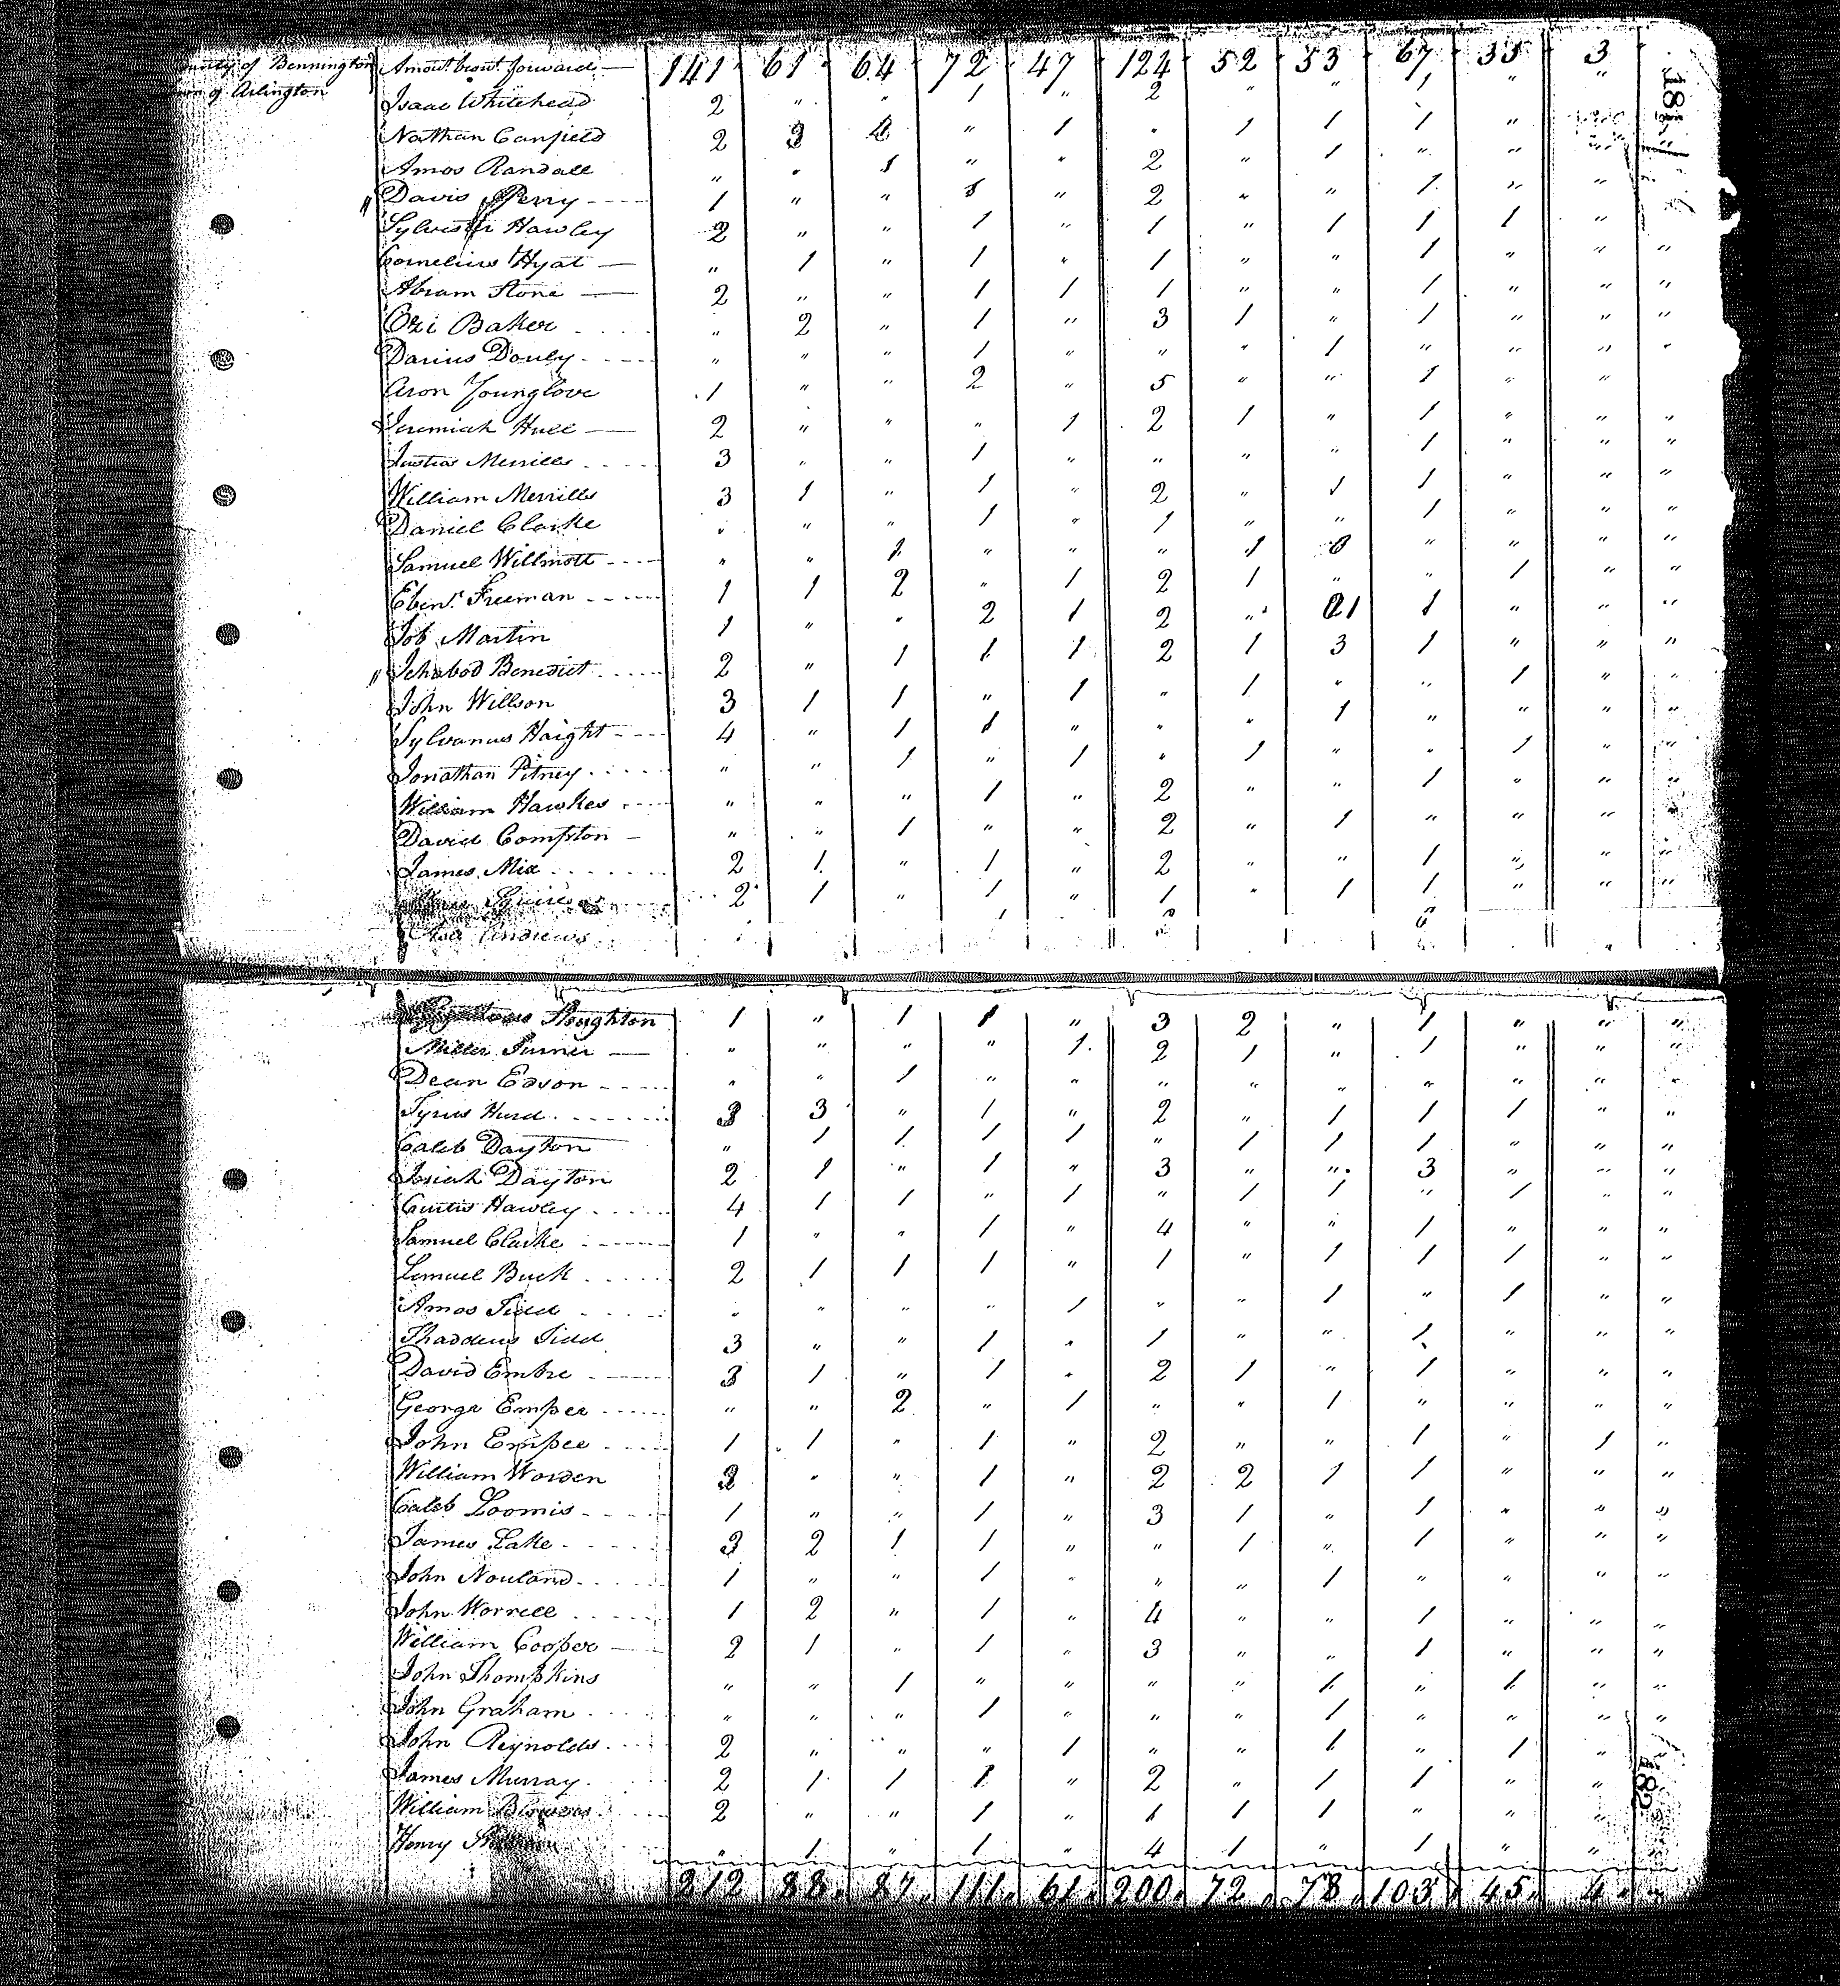 County of Bennington Amount brout forward — 141 61 64 72 47 124 52 53 67 35 3
Town of Arlington Isaac Whitehead 2 " " 1 " 2 " " 1 " "
Nathan Canfield 2 3 " 1 " 1 1 1 "
Amos Randall " " 1 " " 2 " 1 " " "
" Davis Perry 1 " " 1 " 2 " " 1 " "
Sylvester Hawley 2 " " 1 " 1 " 1 1 1 "
Cornelius Hyat — " 1 " 1 " 1 " " 1 " " "
Abram Stone — 2 " " 1 1 1 " " 1 " " "
Ozi Baker " 2 " 1 " 3 1 " 1 " " "
Darius Douly " " " 1 " " " 1 " " " "
Aron Younglove 1 " " 2 " 5 " " 1 " "
Jeremiah Hull — 2 " " " 1 2 1 " 1 " " "
Justus Merrills 3 " " 1 " " " " 1 " " "
William Merrills 3 1 " 1 " 2 " 1 1 " " "
Daniel Clarke " " " 1 " 1 " " 1 " " "
Samuel Willmott " " 1 " " " 1 0 " " " "
Ebenr. Freeman 1 1 2 " 1 2 1 " " 1 " "
Job Martin 1 " " 2 1 2 " 1 1 " " "
" Ichabod Benedict 2 " 1 1 1 2 1 3 1 " " "
John Willson 3 1 1 " 1 " 1 " " 1 " "
Sylvanus Haight 4 " 1 1 " " " 1 " " " "
Jonathan Pitney " " 1 " 1 " 1 " " 1 " "
William Hawkes " " " 1 " 2 " " 1 " " "
David Compton — " " 1 " " 2 " 1 " " " "
James Mix 2 1 " 1 " 2 " " 1 " " "
Squire 2 1 " 1 " 1 " 1 1 " " "
Asa Andrews
Stoughton 1 " 1 1 " 3 2 " 1 " " "
Miller Turner — " " " " 1 2 1 " 1 " " "
Dean Edson " " 1 " " " " " " " " "
Tyrus Hurd 3 3 " 1 " 2 " 1 1 1 " "
Caleb Dayton " 1 1 1 1 " 1 1 1 " " "
Josiah Dayton 2 1 " 1 " 3 " " 3 " " "
Curtis Hawley 4 1 1 " 1 " 1 1 " 1 " "
Samuel Clarke 1 " " 1 " 4 " " 1 " " "
Lemuel Buck 2 1 1 1 " 1 " 1 1 1 " "
Amos Tidd " " " " 1 " " 1 " 1 " "
Thaddeus Tidd 3 " " 1 " 1 " " 1 " " "
David Embre 3 1 " 1 " 2 1 " 1 " " "
George Empee " " 2 " 1 " " 1 " " " "
John Empee 1 1 " 1 " 2 " " 1 " 1 "
William Worden 3 " " 1 " 2 2 1 1 " " "
Caleb Loomis 1 " " 1 " 3 1 " 1 " " "
James Lake 3 2 1 1 " " 1 " 1 " " "
John Nouland 1 " " 1 " " " 1 " " " "
John Worrell 1 2 " 1 " 4 " " 1 " " "
William Cooper — 2 1 " 1 " 3 " " 1 " " "
John Thompkins " " 1 " " " " 1 " 1 " "
John Graham " " " 1 " " " 1 " " " "
John Reynolds 2 " " " 1 " " 1 " 1 " "
James Murray 2 1 1 1 " 2 " 1 1 " "
William 2 " " 1 " 1 1 1 " " "
Henry " 1 " 1 " 4 1 " 1 " " "
212 88 87 111 61 200 72 78 103 45 4
181
82